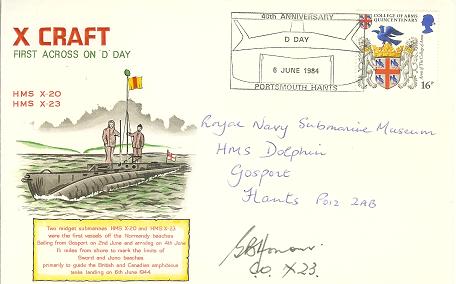 X CRAFT
FIRST ACROSS ON 'D' DAY
HMS X-20
HMS X-23
Two midget submarines HMS X-20 and HMS X-23
were the first vessels off the Normandy beaches
Sailing from Gosport on 2nd June and arriving on 4th June
1½ miles from shore to mark the limits of
Sword and Juno beaches
primarily to guide the British and Canadian amphibious
tanks landing on 6th June 1944.
40th ANNIVERSARY
D DAY
6 JUNE 1984
PORTSMOUTH HANTS
COLLEGE OF ARMS
QUINCENTENARY
16P
Royal Navy Submarine Museum
HMS Dolphin
Gosport
Hants PO12 2AB
G B Honour
C.O. X23.